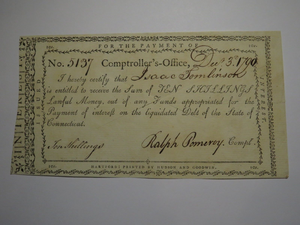 FOR THE PAYMENT OF
No. 5137 Comptroller's-Office, Dec. 3, 1790
I hereby certify that Isaac Tomlinson
is entitled to receive the Sum of TEN SHILLINGS
Lawful Money, out of any Funds appropriated for the
Payment of interest on the liquidated Debt of the State of
Connecticut.
Ten Shillings Ralph Pomeroy, Compt.
HARTFORD: PRINTED BY HUDSON AND GOODWIN.